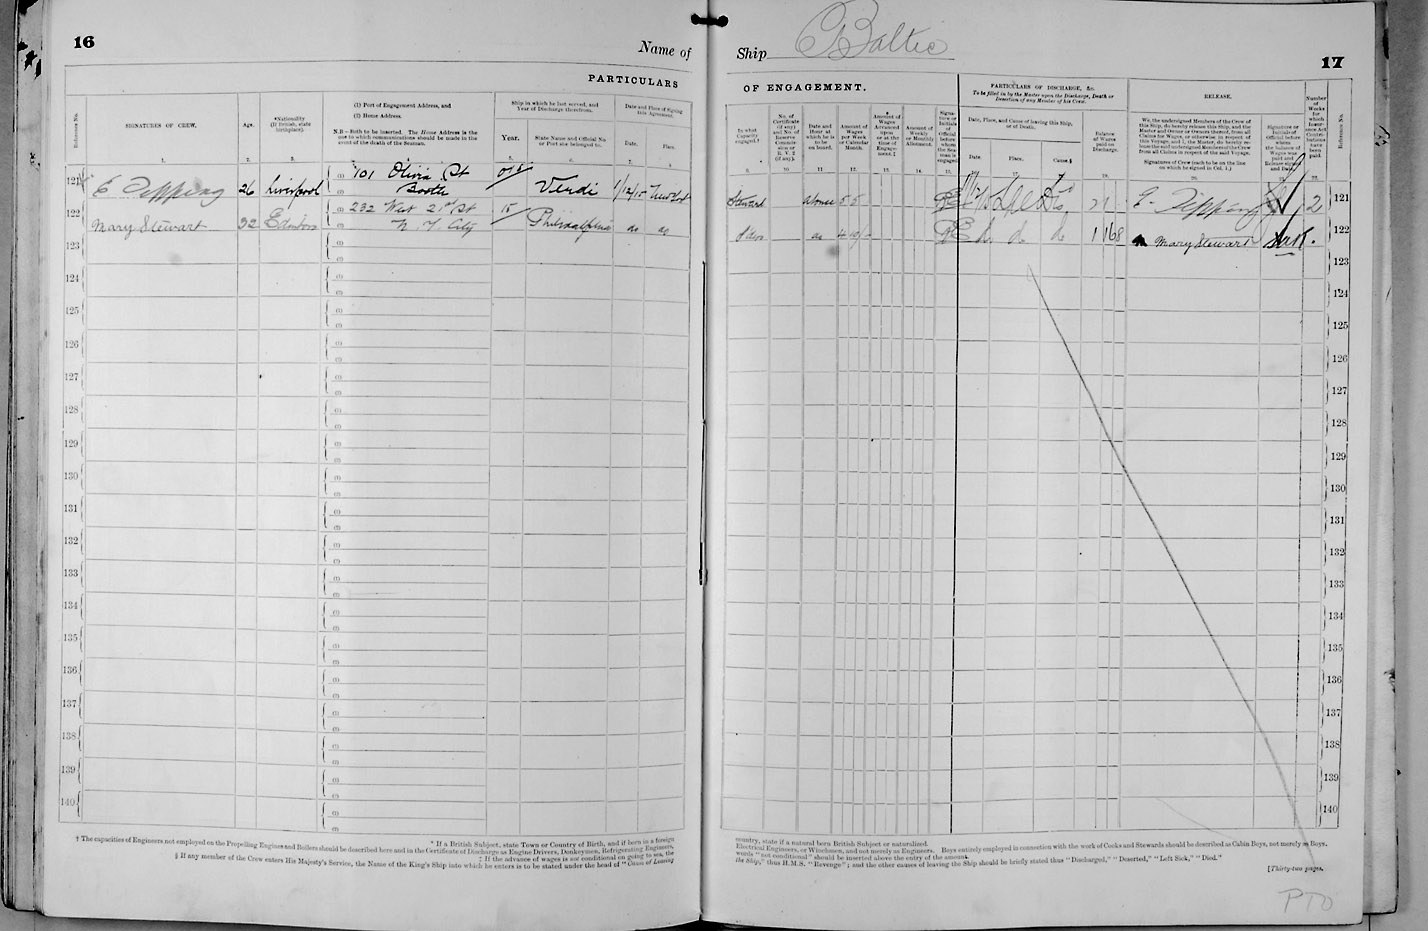 16
Name of
PARTICULARS
Reference No.
SIGNATURES OF CREW.
Age.
*Nationality
(If British, state
birthplace).
(1) Port of Engagement Address, and
(2) Home Address.
N.B.—Both to be inserted. The Home Address is the
one to which communications should be made in the
event of the death of the Seaman.
Ship in which he last served, and
Year of Discharge therefrom.
Year.
State Name and Official No.
or Port she belonged to.
Date and Place of Signing
this Agreement.
Date.
Place.
1.
2.
3.
121
E Tipping
26
Liverpool
(1)
101 Olivia St
(2)
Bootle
Verdi
1/12/15
122
Mary Stewart
32
(1)
232 West 21st St
(2)
N. Y. City
15
Philadelphia
do
do
123
124
125
126
127
128
129
130
131
132
133
134
135
136
137
138
139
140
* If a British Subject, state Town or Country of Birth, and if born in a foreign
† The capacities of Engineers not employed on the Propelling Engines and Boilers should be described here and in the Certificate of Discharge as Engine Drivers, Donkeymen, Refrigerating Engineers,
‡ If the advance of wages is not conditional on going to sea, the
§ If any member of the Crew enters His Majesty's Service, the Name of the King's Ship into which he enters is to be stated under the head of "Cause of Leaving
Ship Baltic
17
OF ENGAGEMENT.
PARTICULARS OF DISCHARGE, &c.
To be filled in by the Master upon the Discharge, Death or
Desertion of any Member of his Crew.
RELEASE.
In what
Capacity
engaged.†
No. of
Certificate
(if any)
and No. of
Reserve
Commis-
sion or
R. V. 2
(if any).
Date and
Hour at
which he is
to be
on board.
Amount of
Wages
per Week
or Calendar
Month.
Amount of
Wages
Advanced
upon
or at the
time of
Engage-
ment.‡
Amount of
Weekly
or Monthly
Allotment.
Signa-
ture or
Initials
of
Official
before
whom
the Sea-
man is
engaged.
Date, Place, and Cause of leaving this Ship,
or of Death.
Date.
Place.
Cause.§
Balance
of Wages
paid on
Discharge.
We, the undersigned Members of the Crew of
this Ship, do hereby release this Ship, and the
Master and Owner or Owners thereof, from all
Claims for Wages, or otherwise, in respect of
this Voyage, and I, the Master, do hereby re-
lease the said undersigned Members of the Crew
from all Claims in respect of the said Voyage.
Signatures of Crew (each to be on the line
on which he signed in Col. 1.)
Signature or
Initials of
Official before
whom
the balance of
Wages was
paid and
Release signed
and Date.
Number
of
Weeks
for
which
Insur-
ance Act
Contri-
butions
have been
paid.
Reference No.
Steward
E. Tipping
2
121
do
Mary Stewart
122
123
124
125
126
127
128
129
130
131
132
133
134
135
136
137
138
139
140
country, state if a natural born British Subject or naturalized.
Electrical Engineers, or Winchmen, and not merely as Engineers. Boys entirely employed in connection with the work of Cooks and Stewards should be described as Cabin Boys, not merely as Boys.
words "not conditional" should be inserted above the entry of the amount.
the Ship," thus H.M.S. "Revenge"; and the other causes of leaving the Ship should be briefly stated thus "Discharged," "Deserted," "Left Sick," "Died."
[Thirty-two pages.
PTO